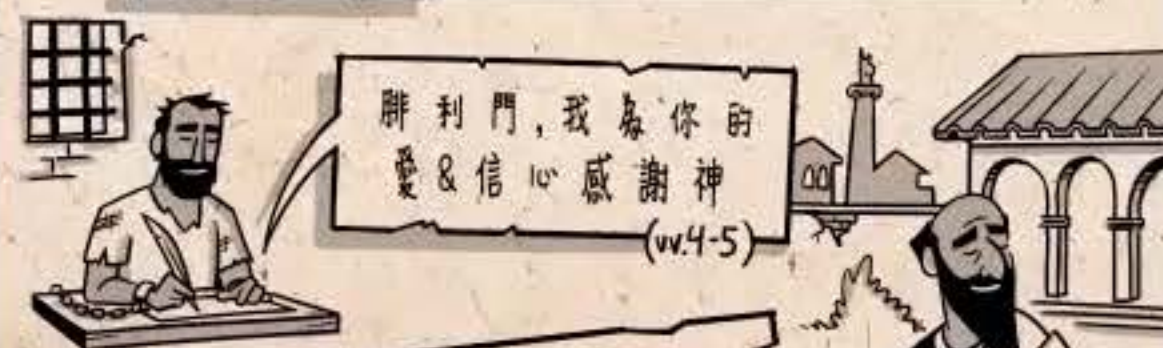 腓利門,我為你的
愛&信心感謝神
(vv.4-5)